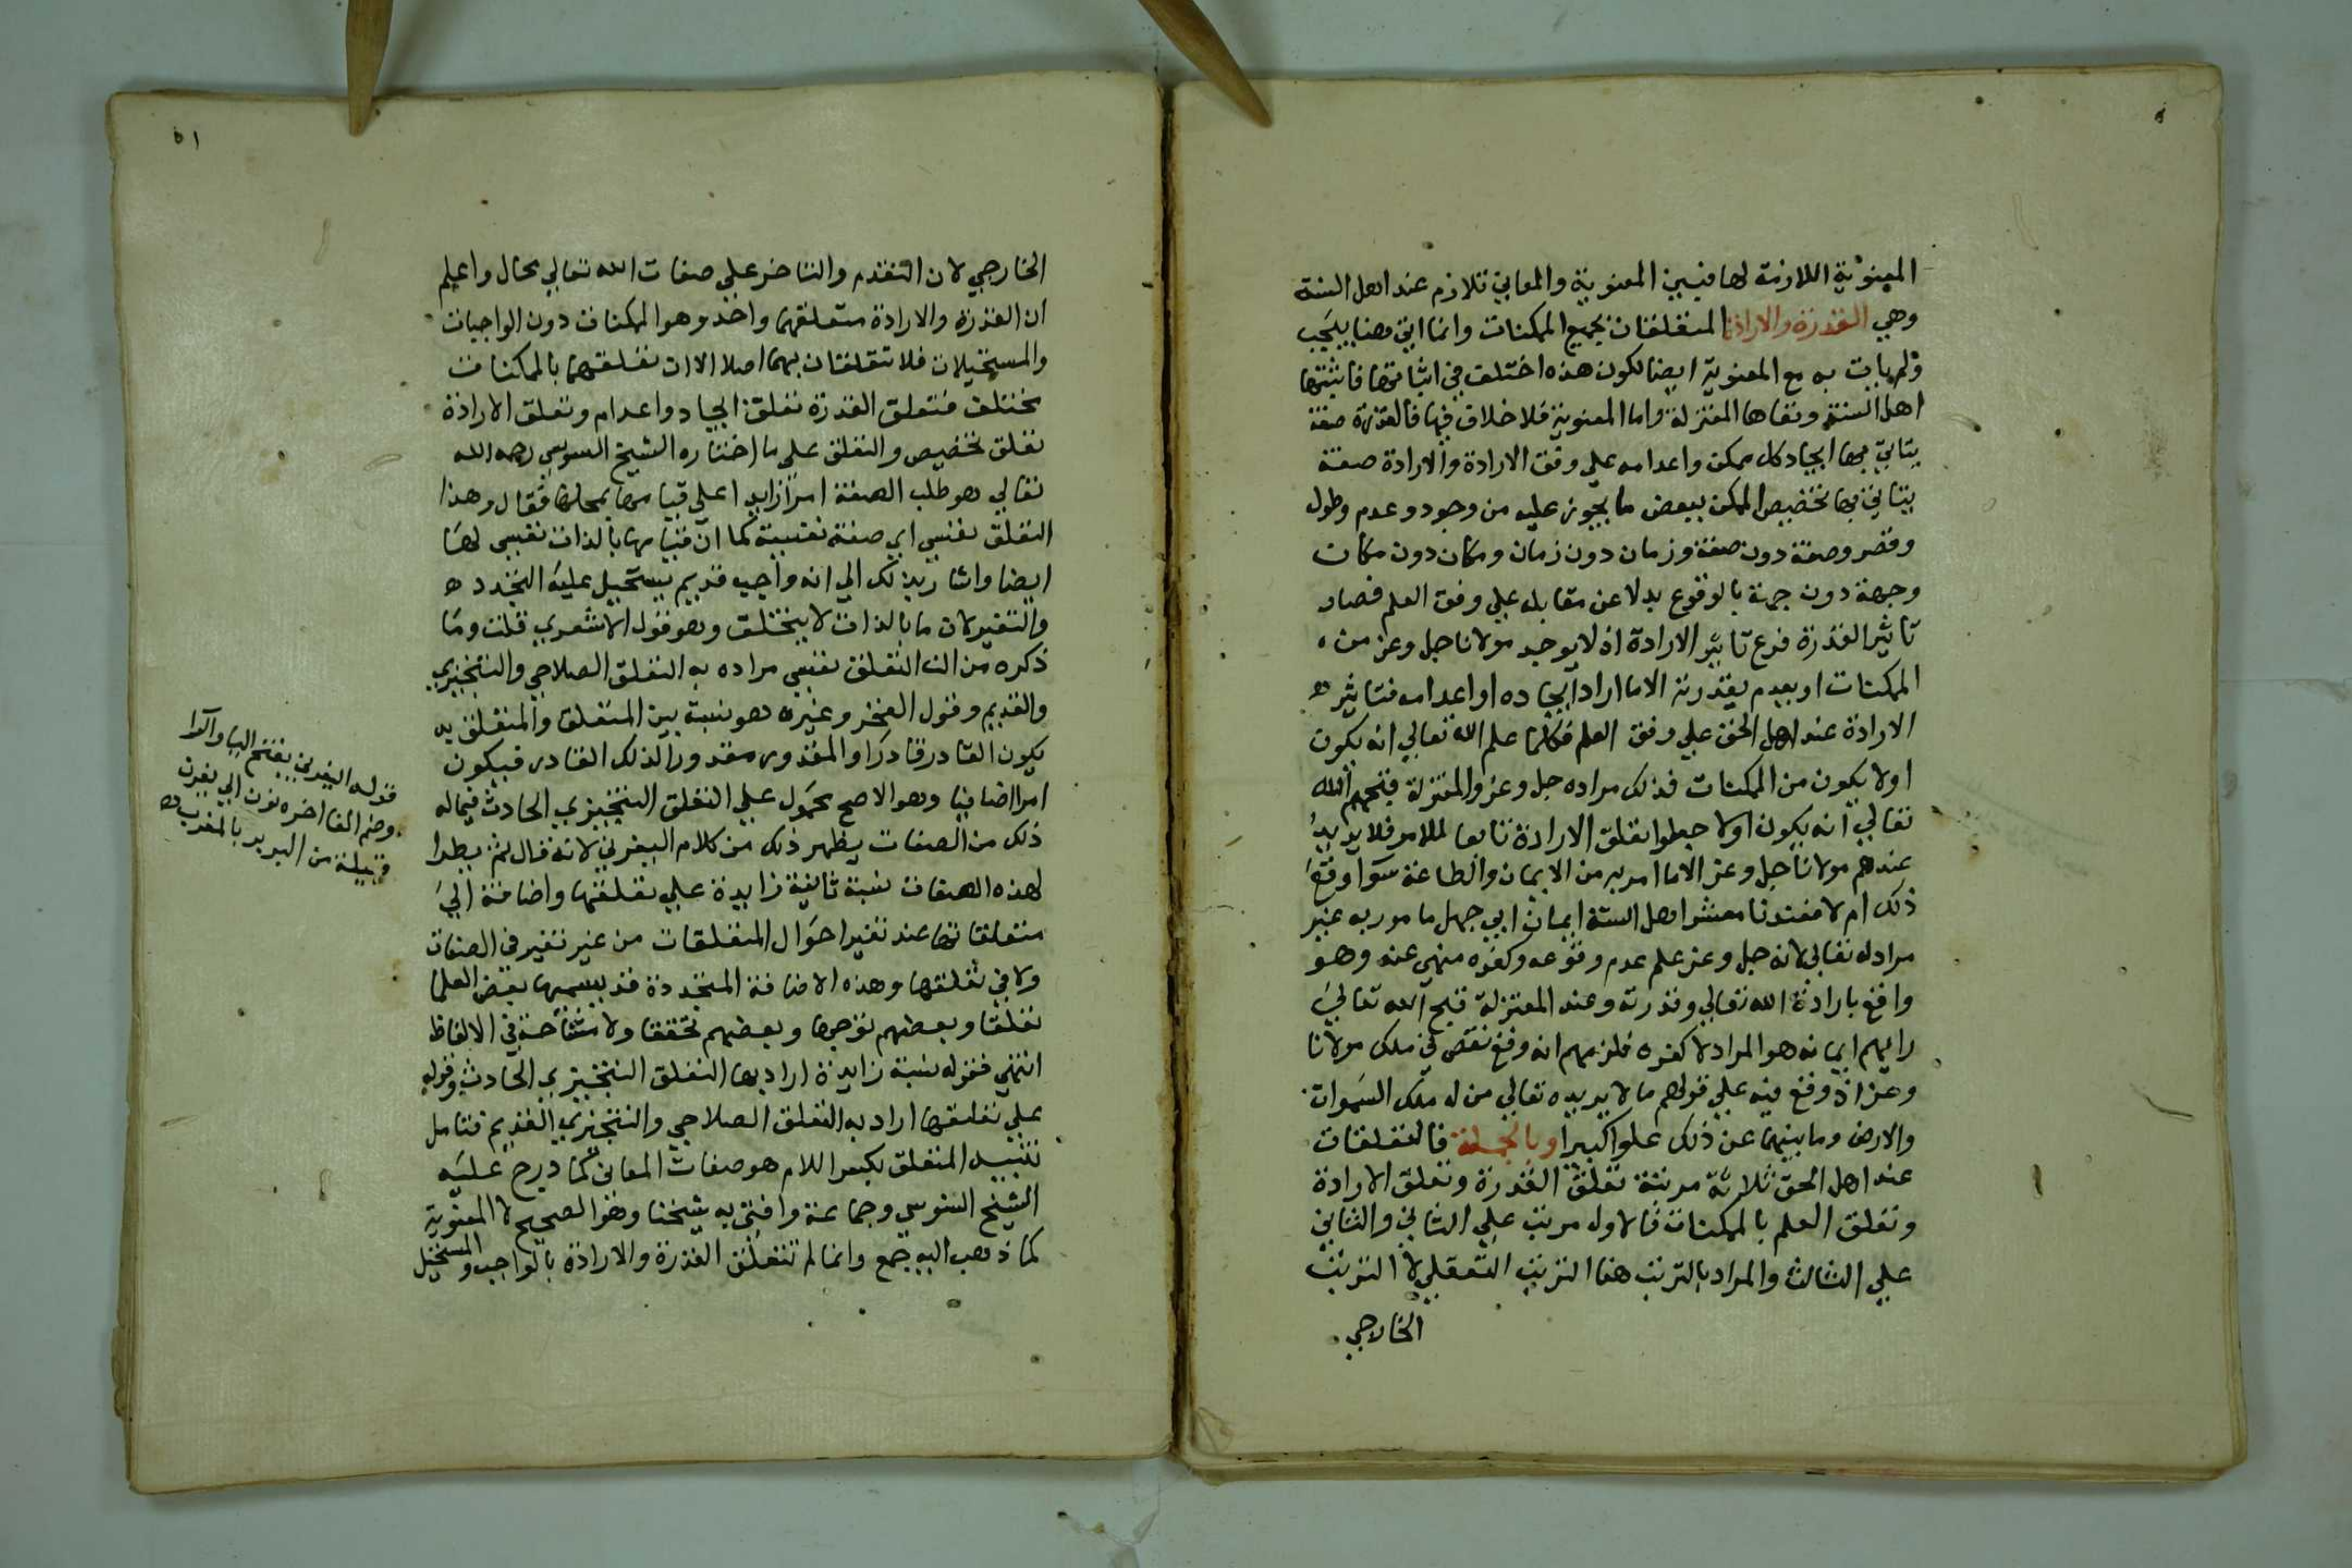 المعنوية اللازمة لها فبين المعنوية والمعاني تلازم عند اهل السنة
وهي القدرة والارادة المتعلقتان بجميع الممكنات وانما اتي هنا بيجب
ولم يات به مع المعنوية ايضا لكون هذه اختلف في اثباتها فاثبتها
اهل السنة ونفاها المعتزلة واما المعنوية فلا خلاف فيها فالقدرة صفة
يتاتي بها ايجاد كل ممكن واعدامه علي وفق الارادة والارادة صفة
يتاتي بها تخصيص الممكن ببعض ما يجوز عليه من وجود وعدم وطول
وقصر وصفة دون صفة وزمان دون زمان ومكان دون مكان
وجهة دون جهة بالوقوع بدلا عن مقابله علي وفق العلم فصار
تاثير القدرة فرع تاثير الارادة اذ لا يوجد مولانا جل وعز من
الممكنات او يعدم بقدرته الا ما اراد ايجاده او اعدامه فتاثير
الارادة عند اهل الحق علي وفق العلم فكلما علم الله تعالي انه يكون
اولا يكون من الممكنات فذلك مراده جل وعز والمعتزلة قبحهم الله
تعالي انه يكون اولا جعلوا تعلق الارادة تابعا للامر فلا يريد
عندهم مولانا جل وعز الا ما امر به من الايمان والطاعة سوا وقع
ذلك ام لا فعندنا معشر اهل السنة ايمان ابي جهل مامور به غير
مراد له تعالي لانه جل وعز علم عدم وقوعه وكفره منهي عنه وهو
واقع بارادة الله تعالي وقدرته وعند المعتزلة قبح الله تعالي
رايهم ايمانه هو المراد لا كفره فلزمهم انه وقع نقص في ملك مولانا
وعز اذ وقع فيه علي قولهم ما لا يريده تعالي من له ملك السموات
والارض وما بينهما عن ذلك علوا كبيرا وبالجملة فالتعلقات
عند اهل الحق ثلاثة مرتبة تعلق القدرة وتعلق الارادة
وتعلق العلم بالممكنات فالاول مرتب علي الثاني والثاني
علي الثالث والمراد بالترتب هنا الترتب التعقلي لا الترتب
الخارجي
٥١
الخارجي لان التقدم والتاخر علي صفات الله تعالي محال واعلم
ان القدرة والارادة متعلقهما واحد وهو الممكنات دون الواجبات
والمستحيلات فلا تتعلقان بهما اصلا الا ان تعلقهما بالممكنات
مختلف فتعلق القدرة تعلق ايجاد واعدام وتعلق الارادة
تعلق تخصيص والتعلق علي ما اختاره الشيخ السنوسي رحمه الله
تعالي هو طلب الصفة امرا زايدا علي قيامها بمحلها فقال وهذا
التعلق نفسي اي صفة نفسية كما ان قيامها بالذات نفسي لها
ايضا واشار بذلك الي انه واجب قديم يستحيل عليه التجدد
والتغير لان ما بالذات لا يتخلف وهو قول الاشعري قلت وما
ذكره من ان التعلق نفسي مراده به التعلق الصلاحي والتنجيزي
والقديم وقول الفخر وغيره هو نسبة بين المتعلق والمتعلق به
يكون القادر قادرا والمقدور مقدورا لذلك القادر فيكون
امرا اضافيا وهو الاصح محمول علي التعلق التنجيزي الحادث فيما له
ذلك من الصفات يظهر ذلك من كلام اليفرني لانه قال ثم يطرا
لهذه الصفات نسبة ثانية زايدة علي تعلقها واضافة الي
متعلقاتها عند تغير احوال المتعلقات من غير تغير في الصفات
ولا في تعلقها وهذه الاضافة المتجددة قد يسميها بعض العلما
تعلقا وبعضهم توجها وبعضهم تحققا ولا مشاحة في الالفاظ
انتهي فقوله نسبة زايدة اراد بها التعلق التنجيزي الحادث وقوله
علي تعلقها اراد به التعلق الصلاحي والتنجيزي القديم فتامل
تنبيه المتعلق بكسر اللام هو صفات المعاني كما درج عليه
الشيخ السنوسي وجماعة وافتي به شيخنا وهو الصحيح لا المعنوية
كما ذهب اليه جمع وانما لم تتعلق القدرة والارادة بالواجب والمستحيل
قوله اليفرني بفتح اليا والرا
وضم الفا اخره نون الي يفرن
قبيلة من البربر بالمغرب